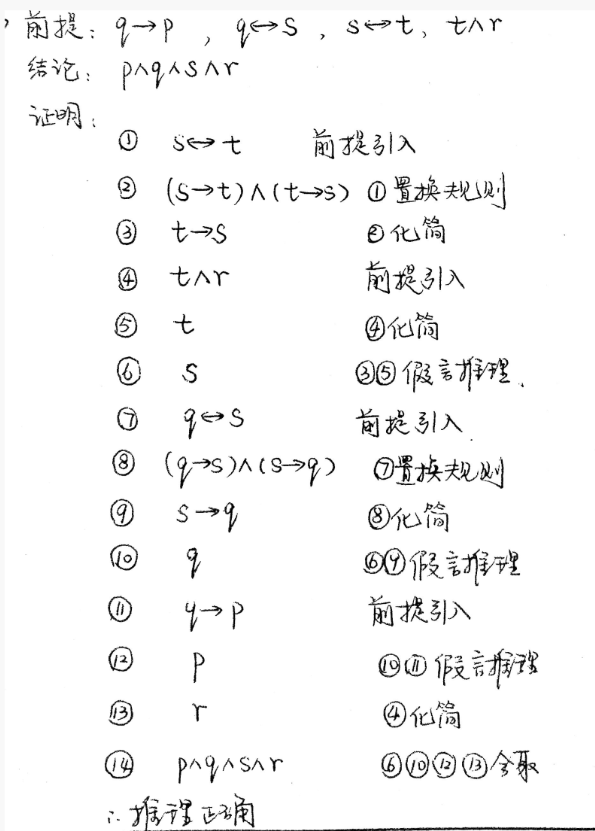 前提: q→p , q↔s , s↔t, t∧r
结论: p∧q∧s∧r
证明:
① s↔t 前提引入
② (s→t)∧(t→s) ①置换规则
③ t→s ②化简
④ t∧r 前提引入
⑤ t ④化简
⑥ s ③⑤假言推理.
⑦ q↔s 前提引入.
⑧ (q→s)∧(s→q) ⑦置换规则
⑨ s→q ⑧化简
⑩ q ⑥⑨假言推理
⑪ q→p 前提引入
⑫ p ⑩⑪假言推理
⑬ r ④化简
⑭ p∧q∧s∧r ⑥⑩⑫⑬合取
∴推理正确